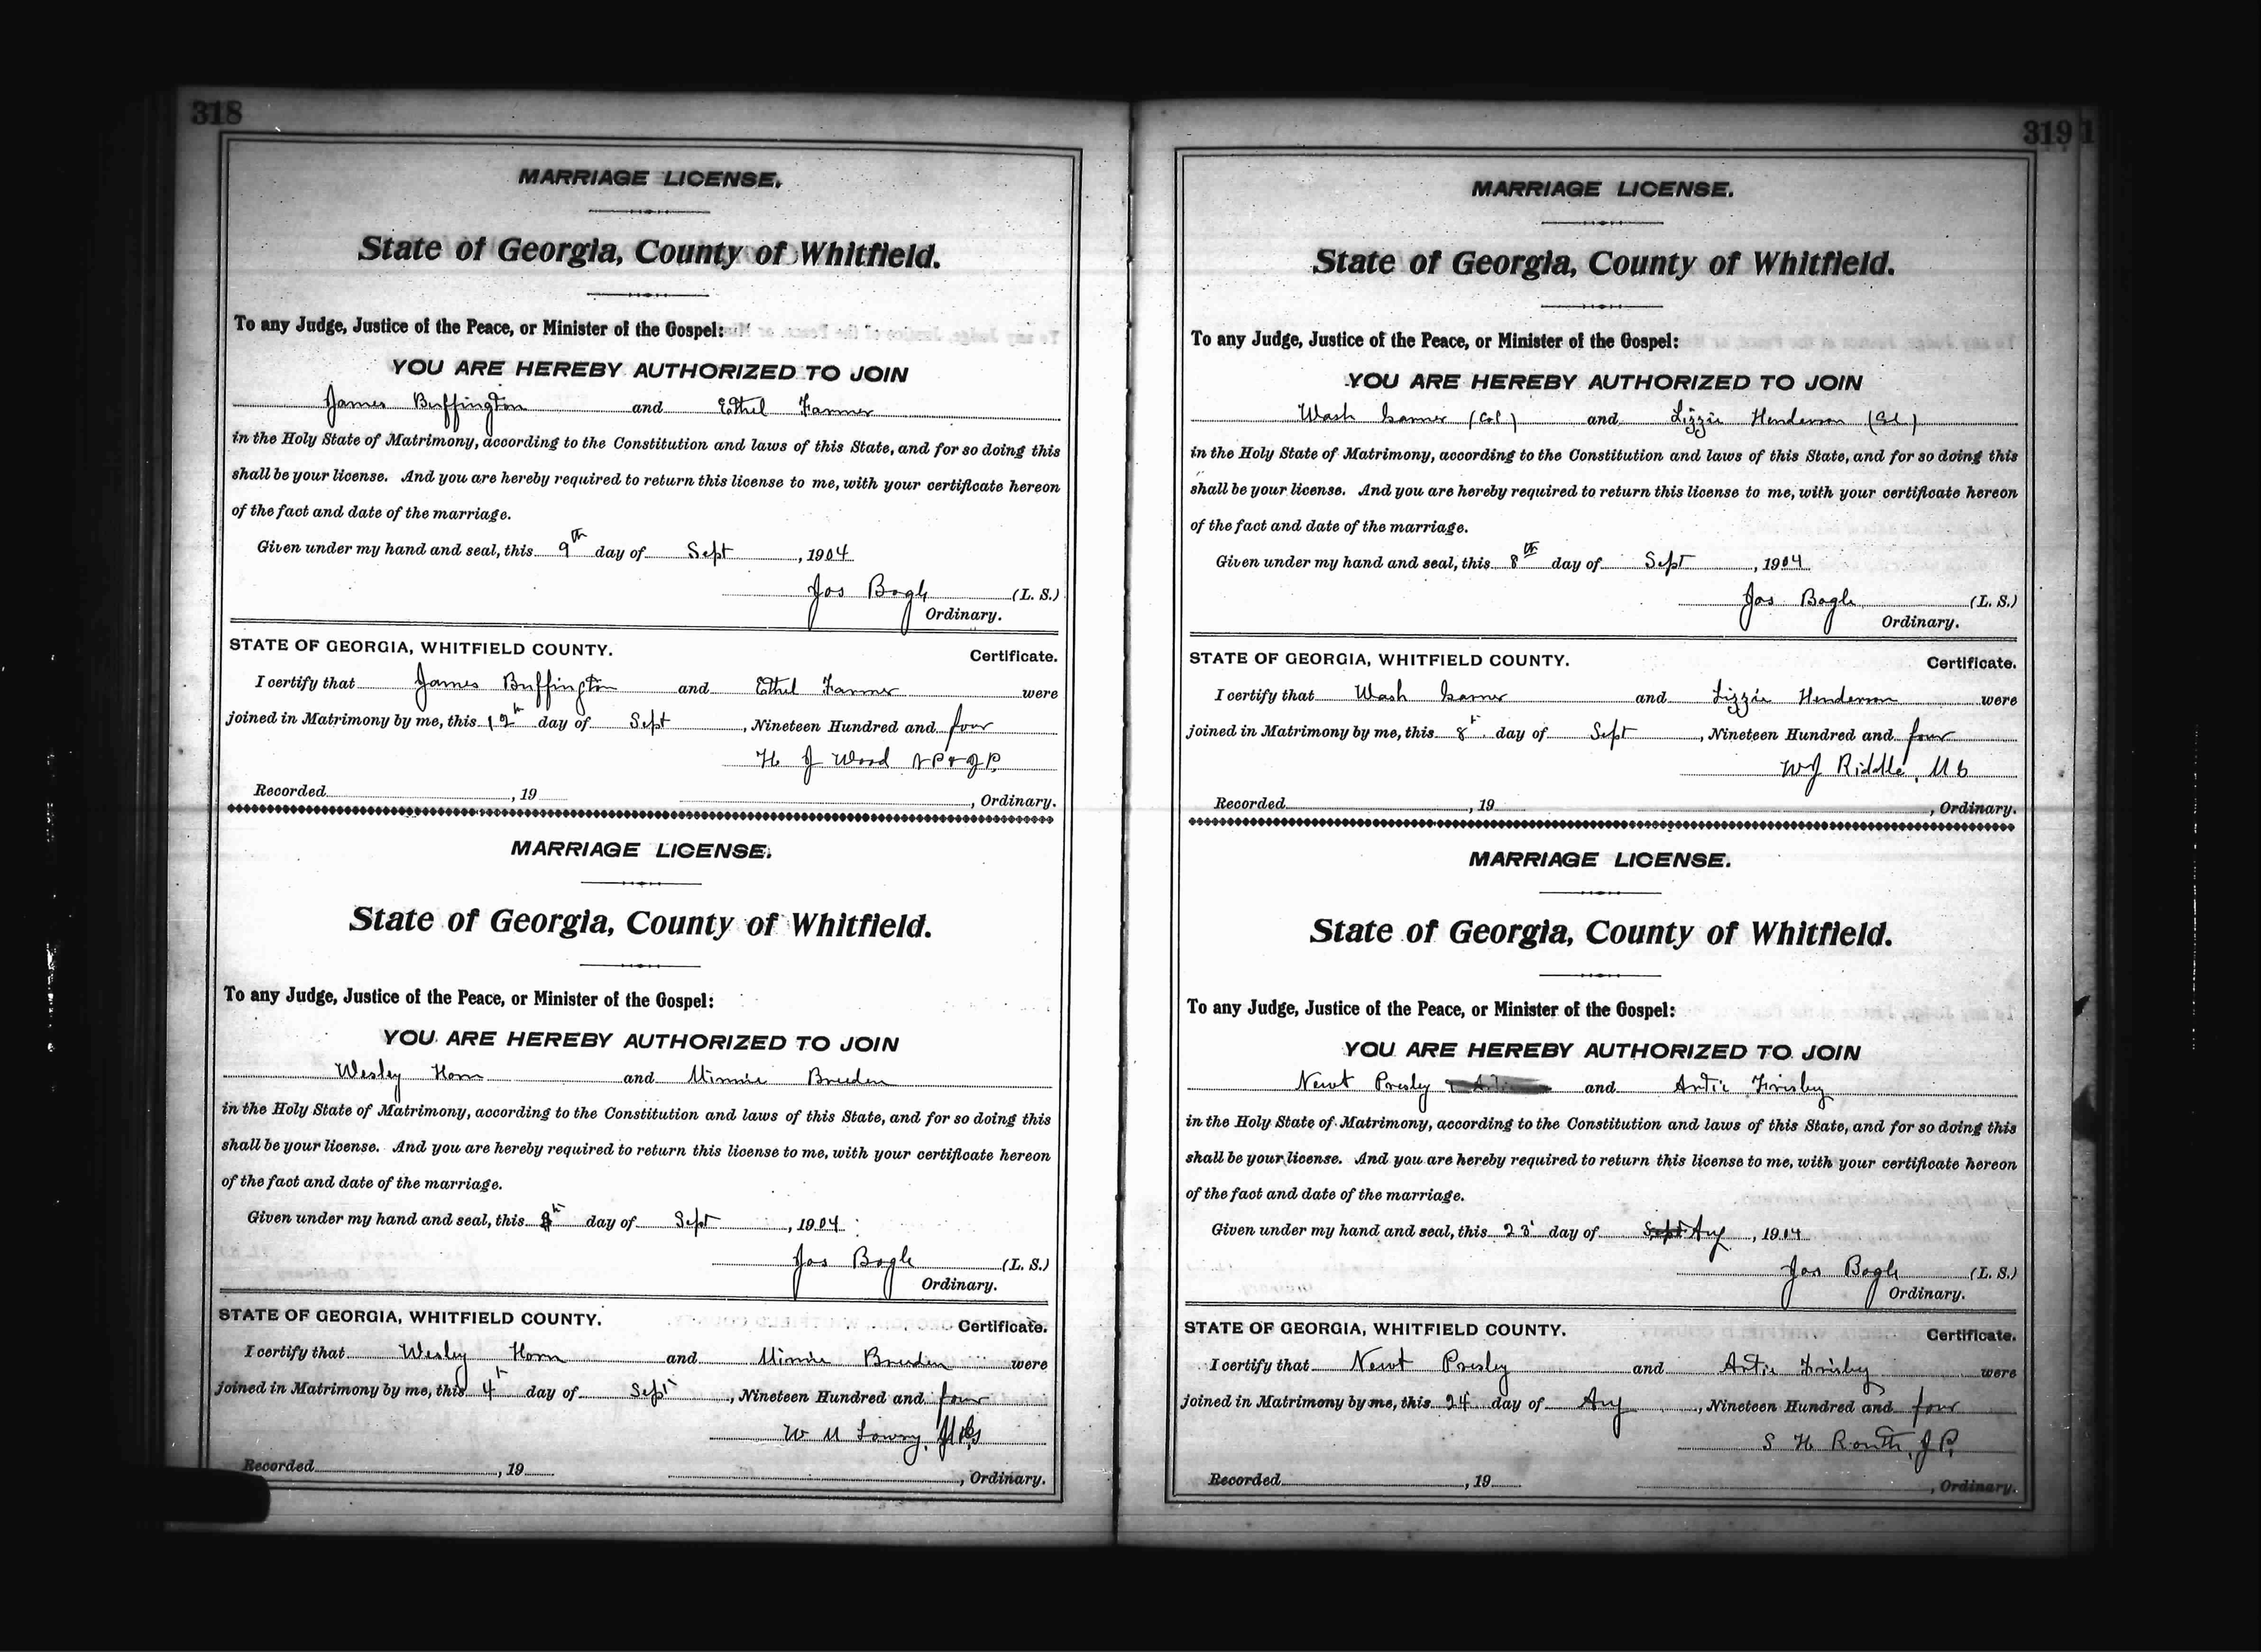 318
MARRIAGE LICENSE.
State of Georgia, County of Whitfield.
To any Judge, Justice of the Peace, or Minister of the Gospel:
YOU ARE HEREBY AUTHORIZED TO JOIN
James Buffington and Ethel Farmer
in the Holy State of Matrimony, according to the Constitution and laws of this State, and for so doing this
shall be your license. And you are hereby required to return this license to me, with your certificate hereon
of the fact and date of the marriage.
Given under my hand and seal, this 9th day of Sept, 1904
Jos Bogle (L. S.)
Ordinary.
STATE OF GEORGIA, WHITFIELD COUNTY. Certificate.
I certify that James Buffington and Ethel Farmer were
joined in Matrimony by me, this 12th day of Sept, Nineteen Hundred and four
H J Wood N P & J P.
Recorded, 19, Ordinary.
MARRIAGE LICENSE.
State of Georgia, County of Whitfield.
To any Judge, Justice of the Peace, or Minister of the Gospel:
YOU ARE HEREBY AUTHORIZED TO JOIN
Wesley Horn and Minnie Breeden
in the Holy State of Matrimony, according to the Constitution and laws of this State, and for so doing this
shall be your license. And you are hereby required to return this license to me, with your certificate hereon
of the fact and date of the marriage.
Given under my hand and seal, this day of Sept, 1904
Jos Bogle (L. S.)
Ordinary.
STATE OF GEORGIA, WHITFIELD COUNTY. Certificate.
I certify that Wesley Horn and Minnie Breeden were
joined in Matrimony by me, this 4th day of Sept, Nineteen Hundred and four
W M Lowry,
Recorded, 19, Ordinary.
319
MARRIAGE LICENSE.
State of Georgia, County of Whitfield.
To any Judge, Justice of the Peace, or Minister of the Gospel:
YOU ARE HEREBY AUTHORIZED TO JOIN
Wash (Col) and Lizzie Henderson (Col)
in the Holy State of Matrimony, according to the Constitution and laws of this State, and for so doing this
shall be your license. And you are hereby required to return this license to me, with your certificate hereon
of the fact and date of the marriage.
Given under my hand and seal, this 8th day of Sept, 1904
Jos Bogle (L. S.)
Ordinary.
STATE OF GEORGIA, WHITFIELD COUNTY. Certificate.
I certify that Wash and Lizzie Henderson were
joined in Matrimony by me, this 8th day of Sept, Nineteen Hundred and four
W J Riddle, M G
Recorded, 19, Ordinary.
MARRIAGE LICENSE.
State of Georgia, County of Whitfield.
To any Judge, Justice of the Peace, or Minister of the Gospel:
YOU ARE HEREBY AUTHORIZED TO JOIN
Newt Presley and Antie Frisby
in the Holy State of Matrimony, according to the Constitution and laws of this State, and for so doing this
shall be your license. And you are hereby required to return this license to me, with your certificate hereon
of the fact and date of the marriage.
Given under my hand and seal, this 23 day of Sept Aug, 1904
Jos Bogle (L. S.)
Ordinary.
STATE OF GEORGIA, WHITFIELD COUNTY. Certificate.
I certify that Newt Presley and Antie Frisby were
joined in Matrimony by me, this 24 day of Aug, Nineteen Hundred and four
S H Routh, J P.
Recorded, 19, Ordinary.